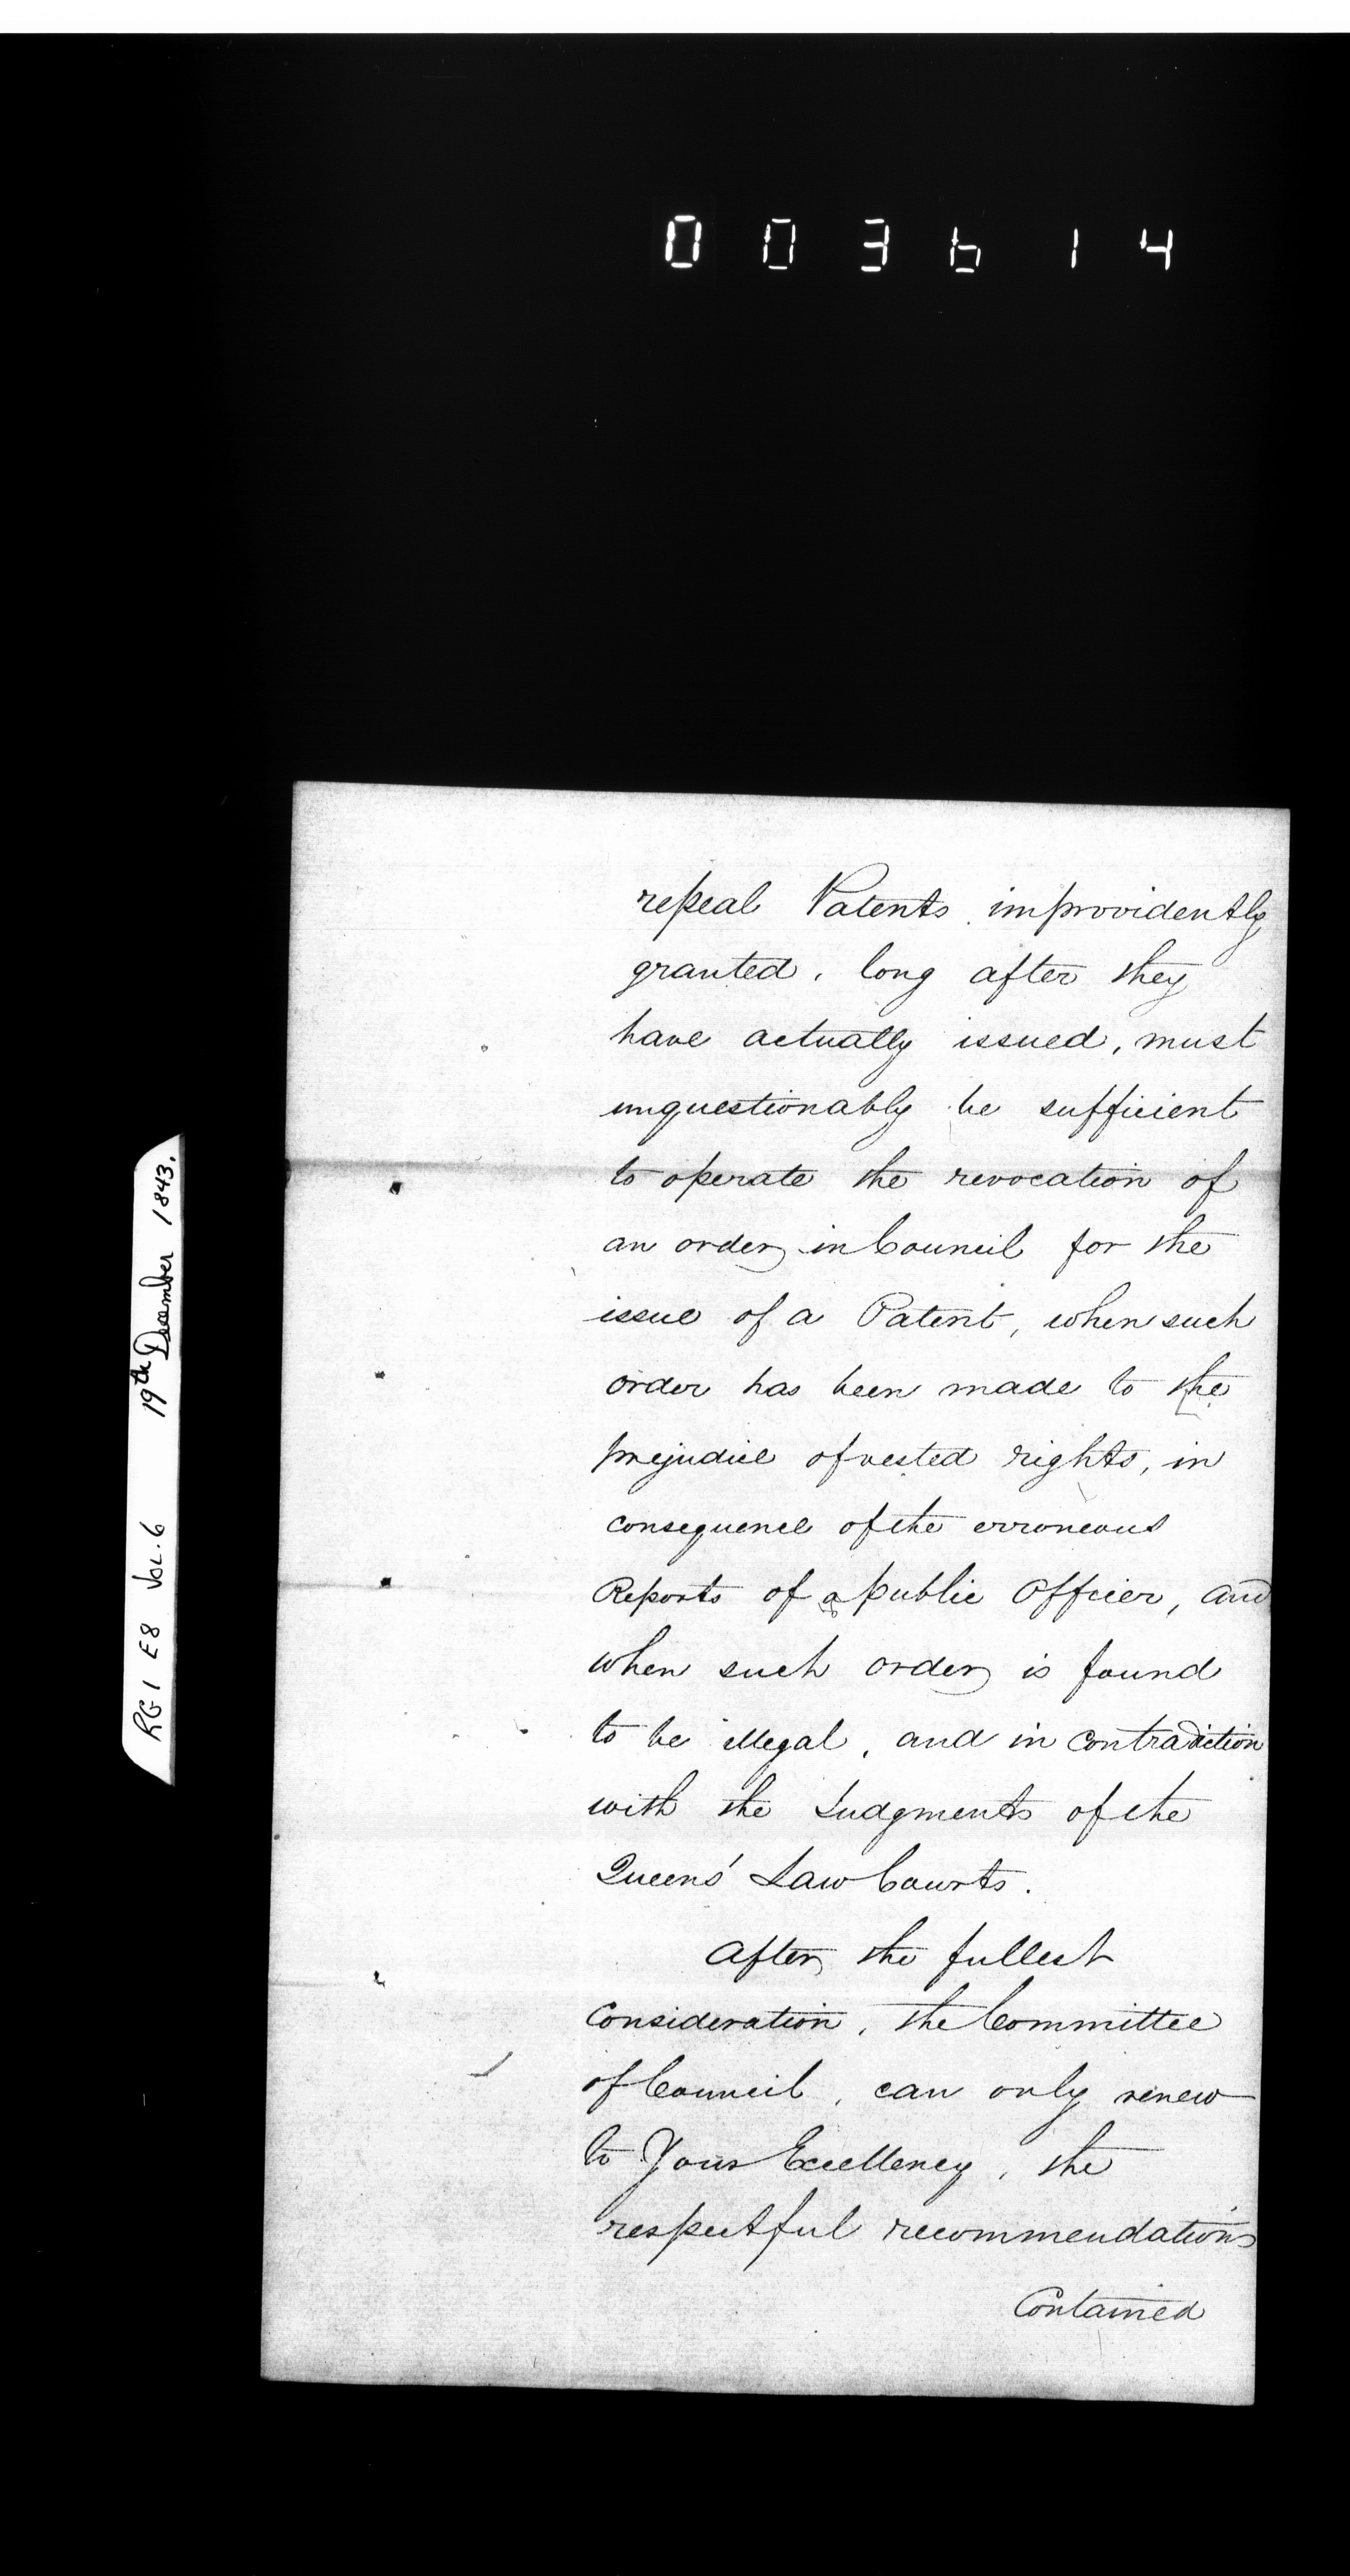 003614
repeal Patents improvidently
granted, long after they
have actually issued, must
unquestionably be sufficient
to operate the revocation of
an order in Council for the
issue of a Patent, when such
order has been made to the
prejudice of vested rights, in
consequence of the erroneous
Reports of a public Officer, and
when such order is found
to be illegal, and in Contradiction
with the Judgments of the
Queens' Law Courts.
After the fullest
Consideration, the Committee
of Council, can only renew
to Your Excellency, the
respectful recommendations
Contained
RG 1 E8 Vol. 6 19th December 1843.